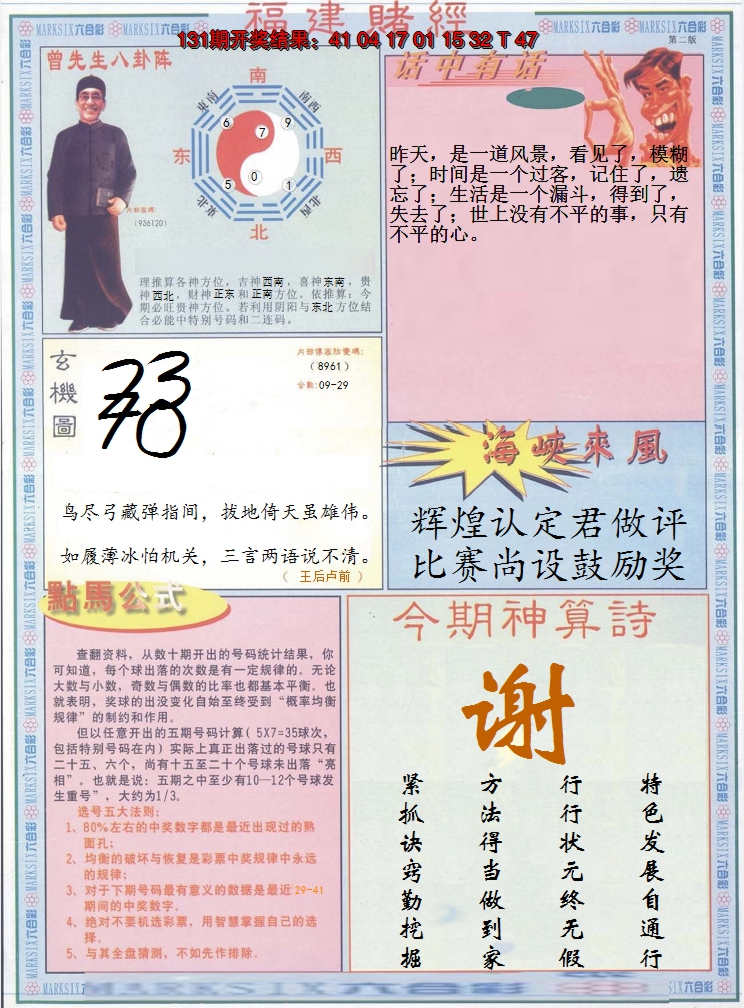 福建賭經
131期开奖结果：41 04 17 01 15 32 T 47
第二版
MARKSIX六合彩
曾先生八卦阵
南
东南
西南
6
9
7
东
西
5
0
1
东北
西北
北
内部密碼：
（936120）
理推算各神方位，吉神西南，喜神东南，贵
神西北，财神正东和正南方位。依推算：今
期必旺贵神方位。若利用阴阳与东北方位结
合必能中特别号码和二连码。
话中有话
昨天，是一道风景，看见了，模糊
了；时间是一个过客，记住了，遗
忘了；生活是一个漏斗，得到了，
失去了；世上没有不平的事，只有
不平的心。
玄機圖
（8961）
合数:09-29
鸟尽弓藏弹指间，拔地倚天虽雄伟。
如履薄冰怕机关，三言两语说不清。
（ 王后卢前 ）
海峽來風
辉煌认定君做评
比赛尚设鼓励奖
點馬公式
查翻资料，从数十期开出的号码统计结果，你
可知道，每个球出落的次数是有一定规律的。无论
大数与小数，奇数与偶数的比率也都基本平衡。也
就表明，奖球的出没变化自始至终受到“概率均衡
规律”的制约和作用。
但以任意开出的五期号码计算（5X7=35球次，
包括特别号码在内）实际上真正出落过的号球只有
二十五、六个，尚有十五至二十个号球未出落“亮
相”。也就是说：五期之中至少有10—12个号球发
生重号”，大约为1/3。
选号五大法则：
1、80%左右的中奖数字都是最近出现过的熟
面孔；
2、均衡的破坏与恢复是彩票中奖规律中永远
的规律；
3、对于下期号码最有意义的数据是最近29-41
期间的中奖数字。
4、绝对不要机选彩票，用智慧掌握自己的选
择。
5、与其全盘猜测，不如先作排除。
今期神算詩
谢
特色发展自通行
行行状元终无假
方法得当做到家
紧抓诀窍勤挖掘